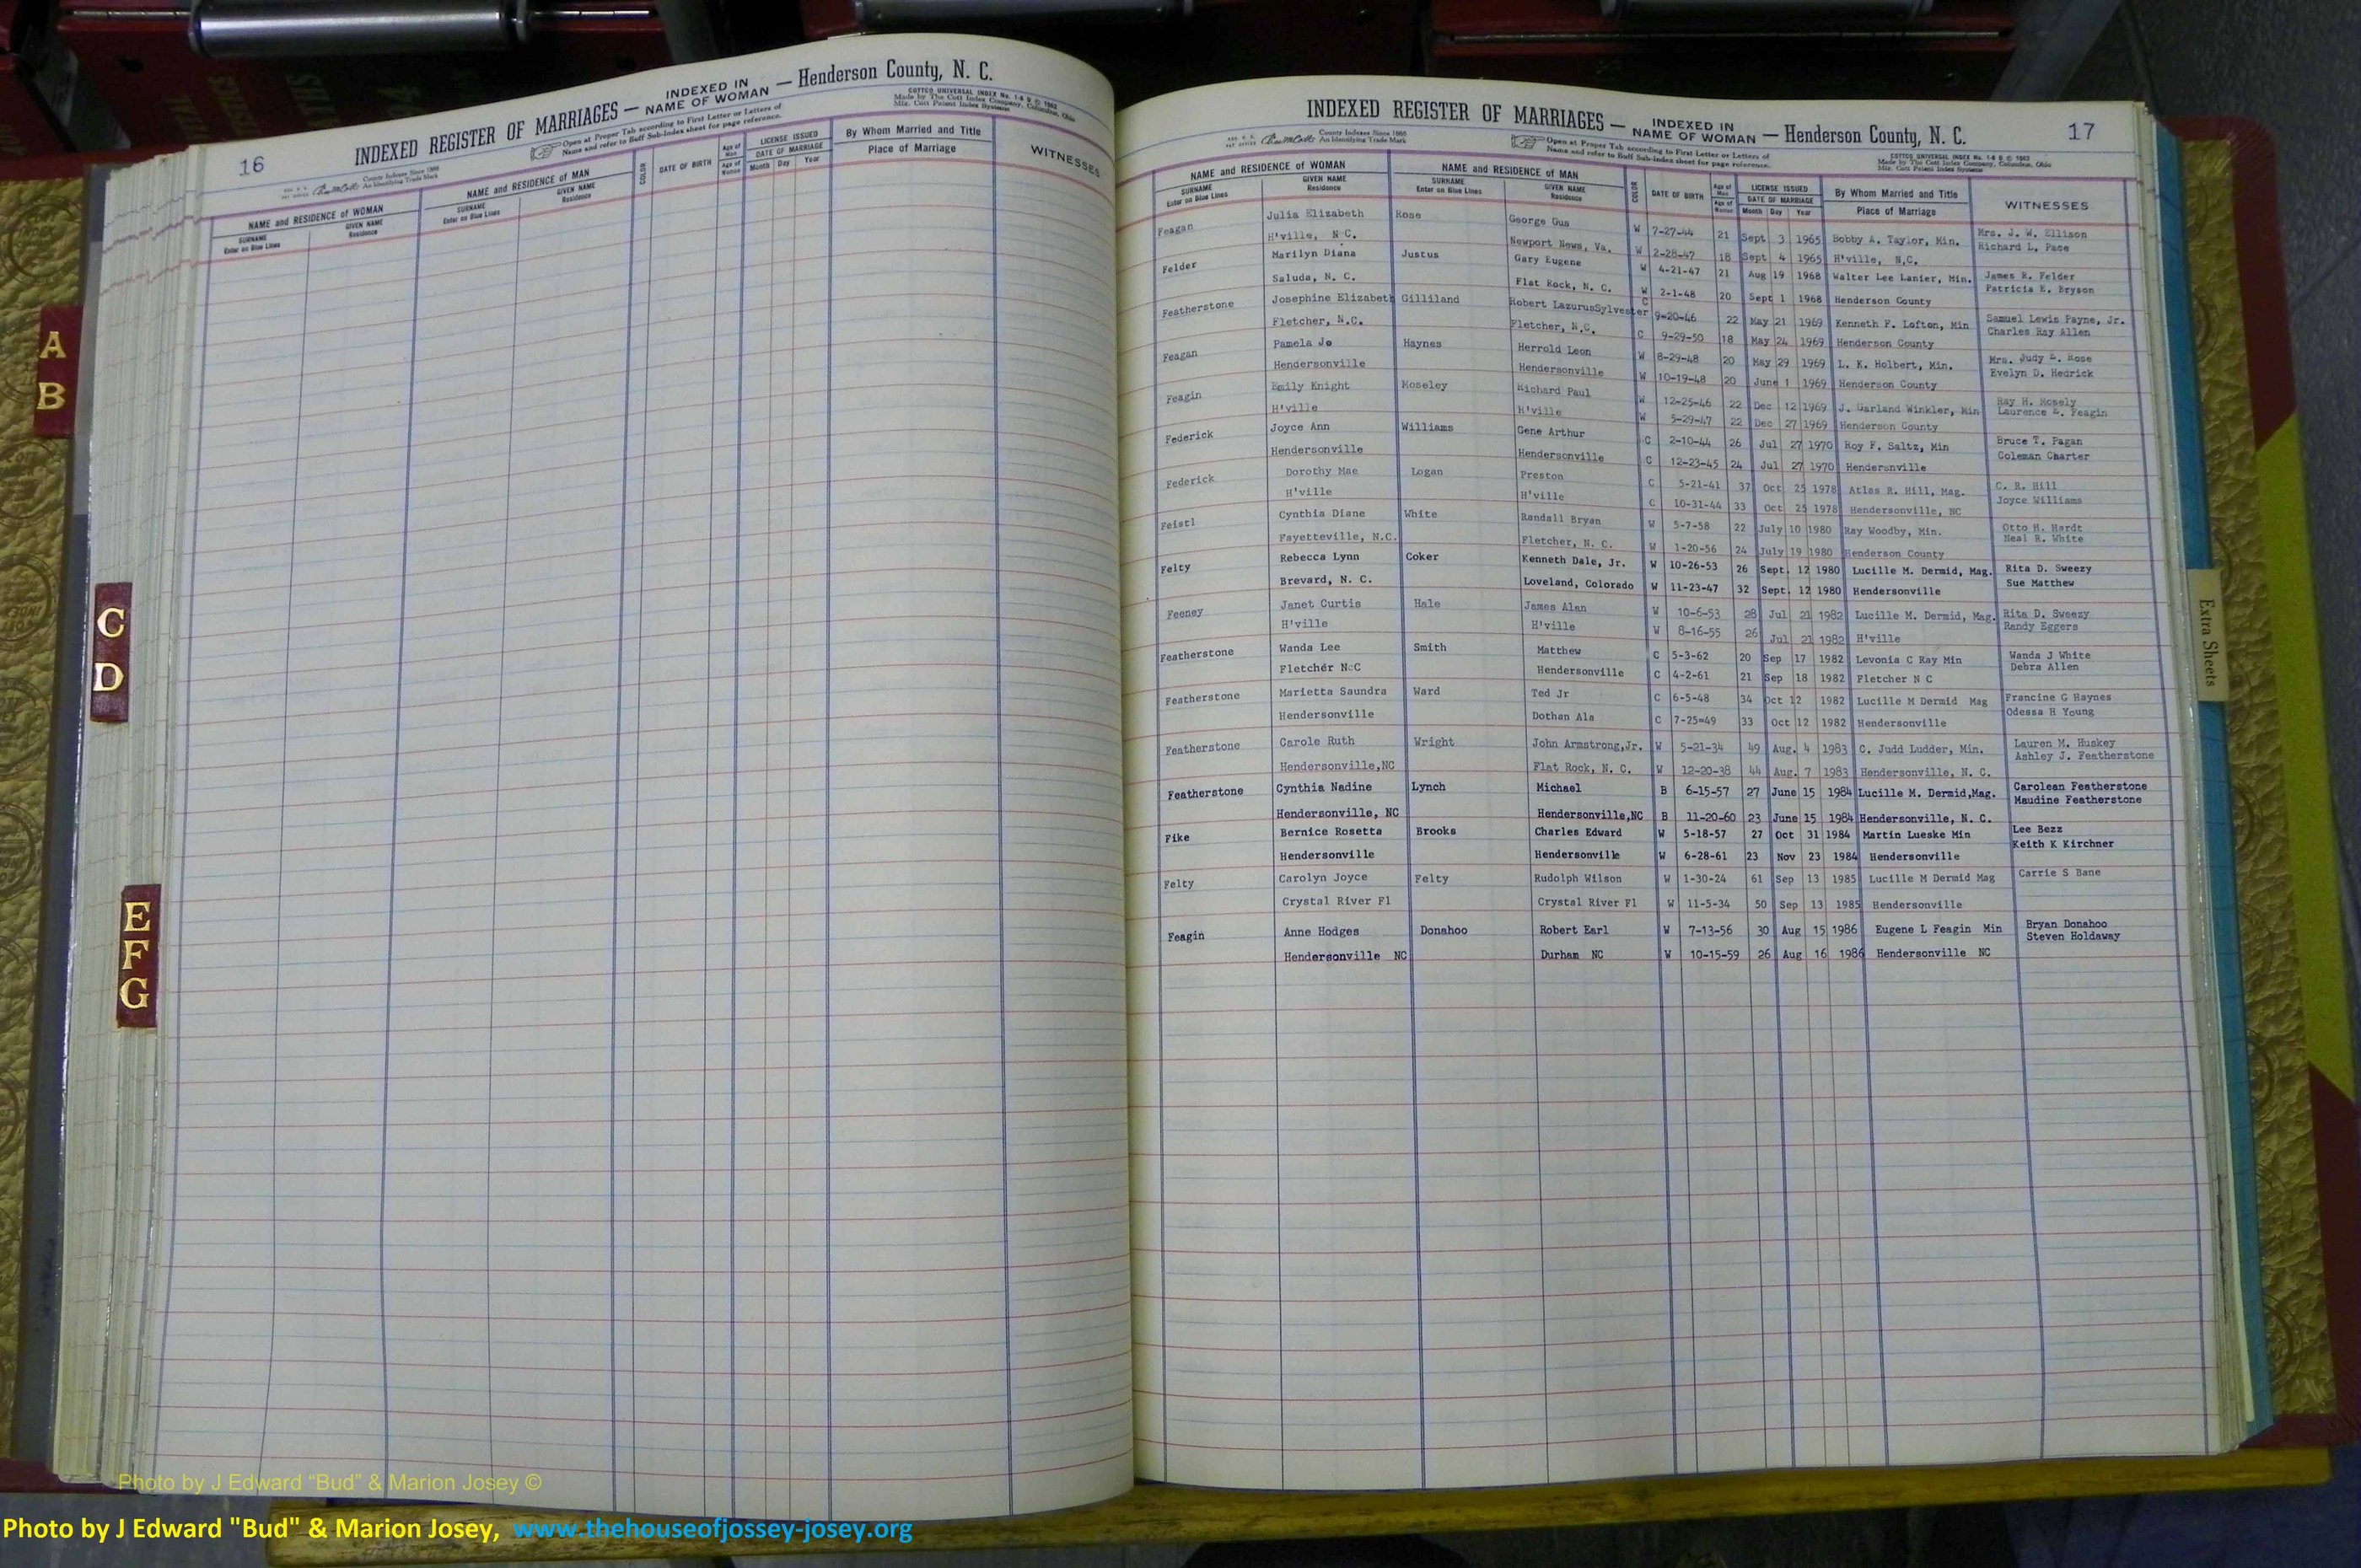 16
INDEXED REGISTER OF MARRIAGES — INDEXED IN NAME OF WOMAN — Henderson County, N. C.
County Indexes Since 1888
An Identifying Trade Mark
Open at Proper Tab according to First Letter or Letters of
Name and refer to Buff Sub-Index sheet for page reference.
COTTCO UNIVERSAL INDEX No.
Made by The Cott Index Company, Columbus, Ohio
Mfr. Cott Patent Index Systems
NAME and RESIDENCE OF WOMAN NAME and RESIDENCE OF MAN COLOR DATE OF BIRTH Age of Man LICENSE ISSUED By Whom Married and Title WITNESSES
SURNAME GIVEN NAME SURNAME GIVEN NAME Age of Woman DATE OF MARRIAGE Place of Marriage
Enter on Blue Lines Residence Enter on Blue Lines Residence Month Day Year
17
INDEXED REGISTER OF MARRIAGES — INDEXED IN NAME OF WOMAN — Henderson County, N. C.
County Indexes Since 1888
An Identifying Trade Mark
Open at Proper Tab according to First Letter or Letters of
Name and refer to Buff Sub-Index sheet for page reference.
COTTCO UNIVERSAL INDEX No.
Made by The Cott Index Company, Columbus, Ohio
Mfr. Cott Patent Index Systems
NAME and RESIDENCE OF WOMAN NAME and RESIDENCE OF MAN COLOR DATE OF BIRTH Age of Man LICENSE ISSUED By Whom Married and Title WITNESSES
SURNAME GIVEN NAME SURNAME GIVEN NAME Age of Woman DATE OF MARRIAGE Place of Marriage
Enter on Blue Lines Residence Enter on Blue Lines Residence Month Day Year
Feagan Julia Elizabeth Rose George Gus W 7-27-44 21 Sept 3 1965 Bobby A. Taylor, Min. Mrs. J. W. Ellison
H'ville, N.C. Newport News, Va. W 2-28-47 18 Sept 4 1965 H'ville, N.C. Richard L. Pace
Felder Marilyn Diana Justus Gary Eugene W 4-21-47 21 Aug 19 1968 Walter Lee Lanier, Min. James R. Felder
Saluda, N. C. Flat Rock, N. C. W 2-1-48 20 Sept 1 1968 Henderson County Patricia E. Bryson
Featherstone Josephine Elizabeth Gilliland Robert LazurusSylvester C 9-20-46 22 May 21 1969 Kenneth F. Lofton, Min Samuel Lewis Payne, Jr.
Fletcher, N.C. Fletcher, N.C. C 9-29-50 18 May 24 1969 Henderson County Charles Ray Allen
Feagan Pamela Jo Haynes Herrold Leon W 8-29-48 20 May 29 1969 L. K. Holbert, Min. Mrs. Judy E. Rose
Hendersonville Hendersonville W 10-19-48 20 June 1 1969 Henderson County Evelyn D. Hedrick
Feagin Emily Knight Moseley Richard Paul W 12-25-46 22 Dec 12 1969 J. Garland Winkler, Min Ray H. Mosely
H'ville H'ville W 5-29-47 22 Dec 27 1969 Henderson County Laurence E. Feagin
Federick Joyce Ann Williams Gene Arthur C 2-10-44 26 Jul 27 1970 Roy F. Saltz, Min Bruce T. Pagan
Hendersonville Hendersonville C 12-23-45 24 Jul 27 1970 Hendersnville Coleman Charter
Federick Dorothy Mae Logan Preston C 5-21-41 37 Oct 25 1978 Atlas R. Hill, Mag. C. R. Hill
H'ville H'ville C 10-31-44 33 Oct 25 1978 Hendersonville, NC Joyce Williams
Feistl Cynthia Diane White Randall Bryan W 5-7-58 22 July 10 1980 Ray Woodby, Min. Otto H. Hardt
Fayetteville, N.C. Fletcher, N. C. W 1-20-56 24 July 19 1980 Henderson County Neal R. White
Felty Rebecca Lynn Coker Kenneth Dale, Jr. W 10-26-53 26 Sept. 12 1980 Lucille M. Dermid, Mag. Rita D. Sweezy
Brevard, N. C. Loveland, Colorado W 11-23-47 32 Sept. 12 1980 Hendersonville Sue Matthew
Feeney Janet Curtis Hale James Alan W 10-6-53 28 Jul 21 1982 Lucille M. Dermid, Mag. Rita D. Sweezy
H'ville H'ville W 8-16-55 26 Jul 21 1982 H'ville Randy Eggers
Featherstone Wanda Lee Smith Matthew C 5-3-62 20 Sep 17 1982 Levonia C Ray Min Wanda J White
Fletcher NcC Hendersonville C 4-2-61 21 Sep 18 1982 Fletcher N C Debra Allen
Featherstone Marietta Saundra Ward Ted Jr C 6-5-48 34 Oct 12 1982 Lucille M Dermid Mag Francine G Haynes
Hendersonville Dothan Ala C 7-25=49 33 Oct 12 1982 Hendersonville Odessa H Young
Featherstone Carole Ruth Wright John Armstrong,Jr. W 5-21-34 49 Aug. 4 1983 C. Judd Ludder, Min. Lauren M. Huskey
Hendersonville,NC Flat Rock, N. C. W 12-20-38 44 Aug. 7 1983 Hendersonville, N. C. Ashley J. Featherstone
Featherstone Cynthia Nadine Lynch Michael B 6-15-57 27 June 15 1984 Lucille M. Dermid,Mag. Carolean Featherstone
Hendersonville, NC Hendersonville,NC B 11-20-60 23 June 15 1984 Hendersonville, N. C. Maudine Featherstone
Fike Bernice Rosetta Brooks Charles Edward W 5-18-57 27 Oct 31 1984 Martin Lueske Min Lee Bezz
Hendersonville Hendersonville W 6-28-61 23 Nov 23 1984 Hendersonville Keith K Kirchner
Felty Carolyn Joyce Felty Rudolph Wilson W 1-30-24 61 Sep 13 1985 Lucille M Dermid Mag Carrie S Bane
Crystal River Fl Crystal River Fl W 11-5-34 50 Sep 13 1985 Hendersonville
Feagin Anne Hodges Donahoo Robert Earl W 7-13-56 30 Aug 15 1986 Eugene L Feagin Min Bryan Donahoo
Hendersonville NC Durham NC W 10-15-59 26 Aug 16 1986 Hendersonville NC Steven Holdaway
A
B
C
D
E
F
G
Extra Sheets
Photo by J Edward “Bud” & Marion Josey ©
Photo by J Edward "Bud" & Marion Josey, www.thehouseofjossey-josey.org